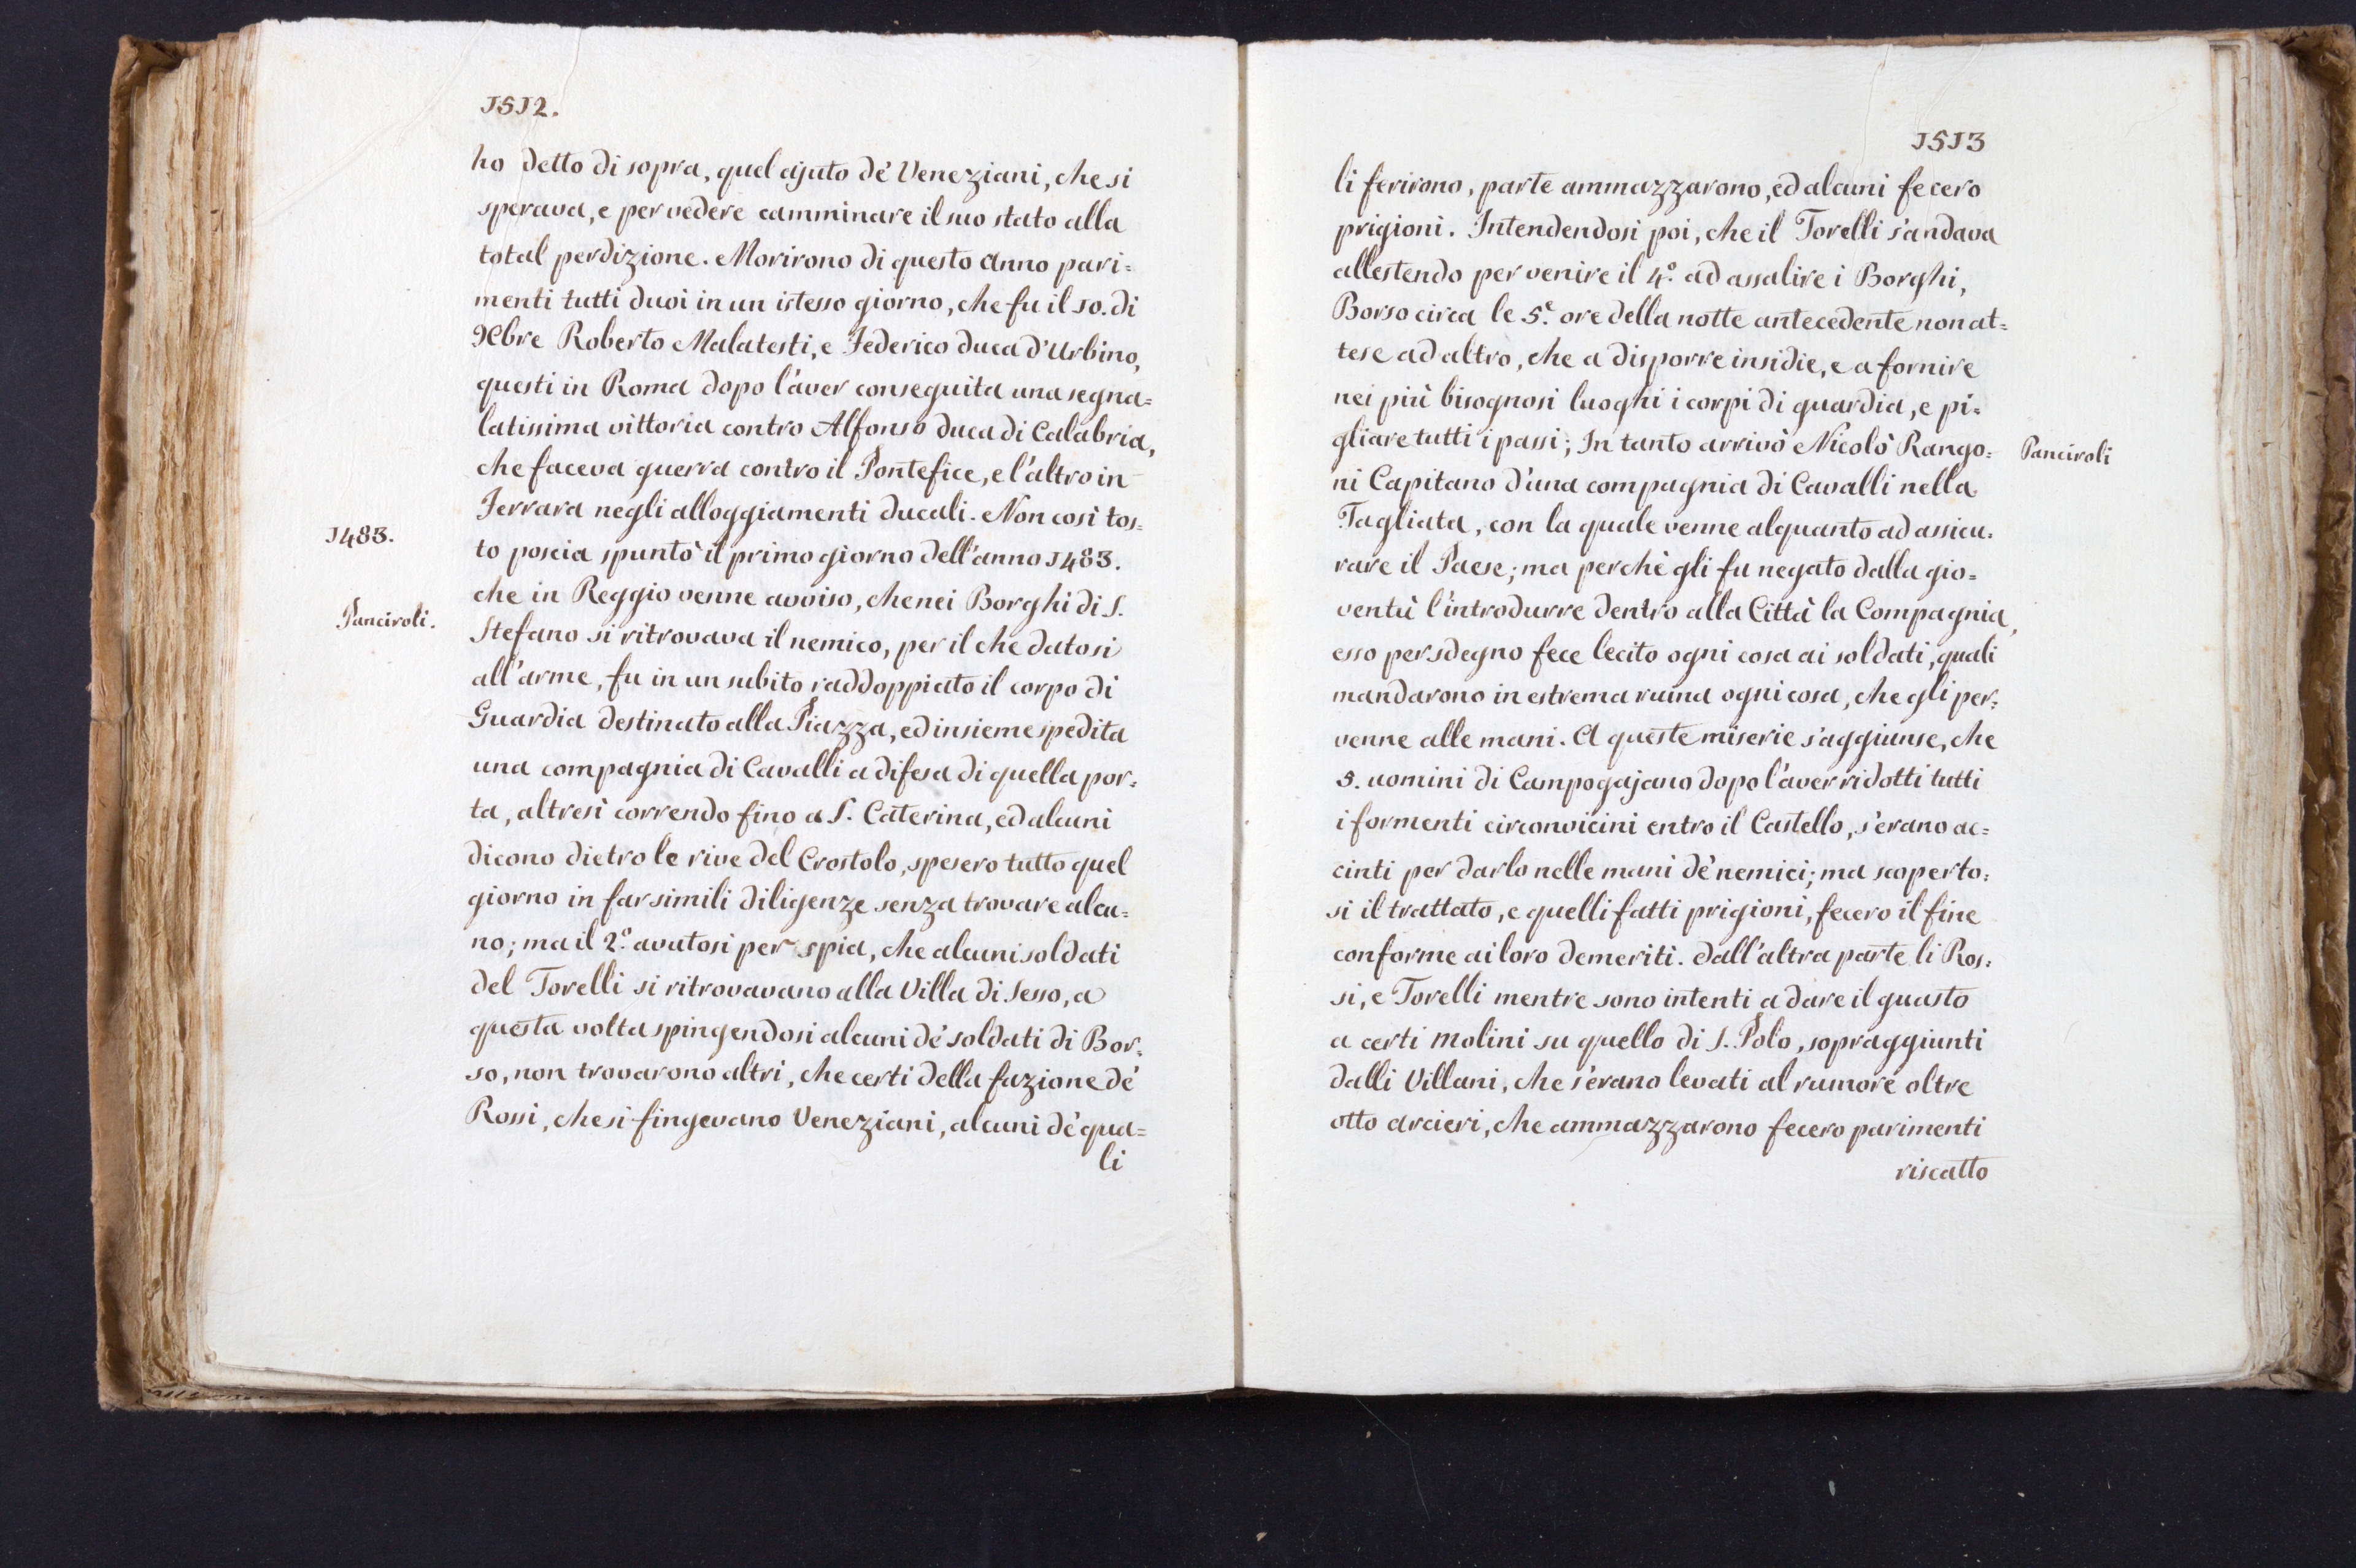 1512.
ho detto di sopra, quel ajuto de' Veneziani, che si
sperava, e per vedere camminare il suo stato alla
total perdizione. Morirono di questo Anno pari=
menti tutti duoi in un istesso giorno, che fu il 10. di
9Cbre Roberto Malatesti, e Federico duca d'Urbino,
questi in Roma dopo l'aver conseguita una segna=
latissima vittoria contro Alfonso duca di Calabria,
che faceva guerra contro il Pontefice, e l'altro in
Ferrara negli alloggiamenti ducali. Non così tos=
1483.
to poscia spuntò il primo giorno dell'anno 1483.
che in Reggio venne avviso, che nei Borghi di S.
Panciroli.
Stefano si ritrovava il nemico, per il che datosi
all'arme, fu in un subito raddoppiato il corpo di
Guardia destinato alla Piazza, ed insieme spedita
una compagnia di Cavalli a difesa di quella por=
ta, altresì correndo fino a S. Caterina, ed alcuni
dicono dietro le rive del Crostolo, spesero tutto quel
giorno in far simili diligenze senza trovare alcu=
no; ma il 2.º avutosi per spia, che alcuni soldati
del Torelli si ritrovavano alla Villa di Sesso, a
questa volta spingendosi alcuni de' soldati di Bor=
so, non trovarono altri, che certi della fazione de'
Rossi, che si fingevano Veneziani, alcuni de' qua=
li
1513
li ferirono, parte ammazzarono, ed alcuni fecero
prigioni. Intendendosi poi, che il Torelli s'andava
allestendo per venire il 4.º ad assalire i Borghi,
Borso circa le 5.e ore della notte antecedente non at=
tese ad altro, che a disporre insidie, e a fornire
nei più bisognosi luoghi i corpi di guardia, e pi=
gliare tutti i passi; In tanto arrivò Nicolò Rango=
Panciroli
ni Capitano d'una compagnia di Cavalli nella
Tagliata, con la quale venne alquanto ad assicu=
rare il Paese; ma perchè gli fu negato dalla gio=
ventù l'introdurre dentro alla Città la Compagnia,
esso per sdegno fece lecito ogni cosa ai soldati, quali
mandarono in estrema ruina ogni cosa, che gli per=
venne alle mani. A queste miserie s'aggiunse, che
5. uomini di Campogajano dopo l'aver ridotti tutti
i formenti circonvicini entro il Castello, s'erano ac=
cinti per darlo nelle mani de' nemici; ma scoperto=
si il trattato, e quelli fatti prigioni, fecero il fine
conforme ai loro demeriti. dall'altra parte li Ros=
si, e Torelli mentre sono intenti a dare il guasto
a certi Molini su quello di S. Polo, sopraggiunti
dalli Villani, che s'erano levati al rumore oltre
otto arcieri, che ammazzarono fecero parimenti
riscatto